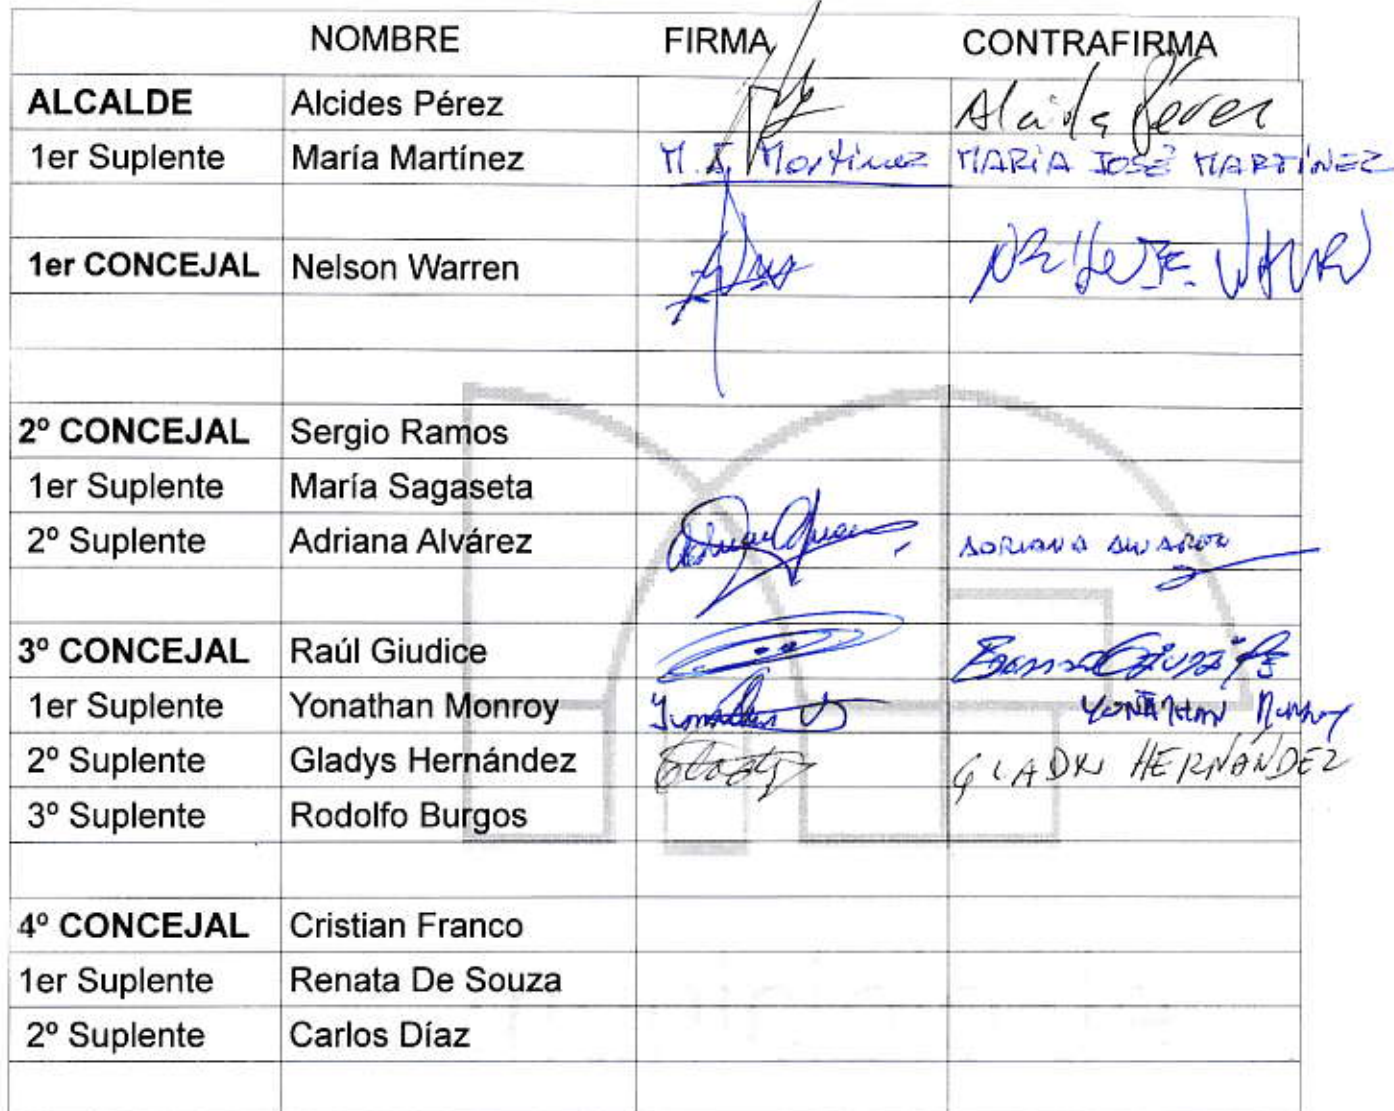 NOMBRE FIRMA CONTRAFIRMA
ALCALDE Alcides Pérez Alcides Pérez
1er Suplente María Martínez M. J. Martínez MARÍA JOSÉ MARTÍNEZ
1er CONCEJAL Nelson Warren
2º CONCEJAL Sergio Ramos
1er Suplente María Sagaseta
2º Suplente Adriana Alvárez ADRIANA ALVAREZ
3º CONCEJAL Raúl Giudice
1er Suplente Yonathan Monroy Yonathan YONATHAN Monroy
2º Suplente Gladys Hernández Gladys GLADYS HERNÁNDEZ
3º Suplente Rodolfo Burgos
4º CONCEJAL Cristian Franco
1er Suplente Renata De Souza
2º Suplente Carlos Díaz